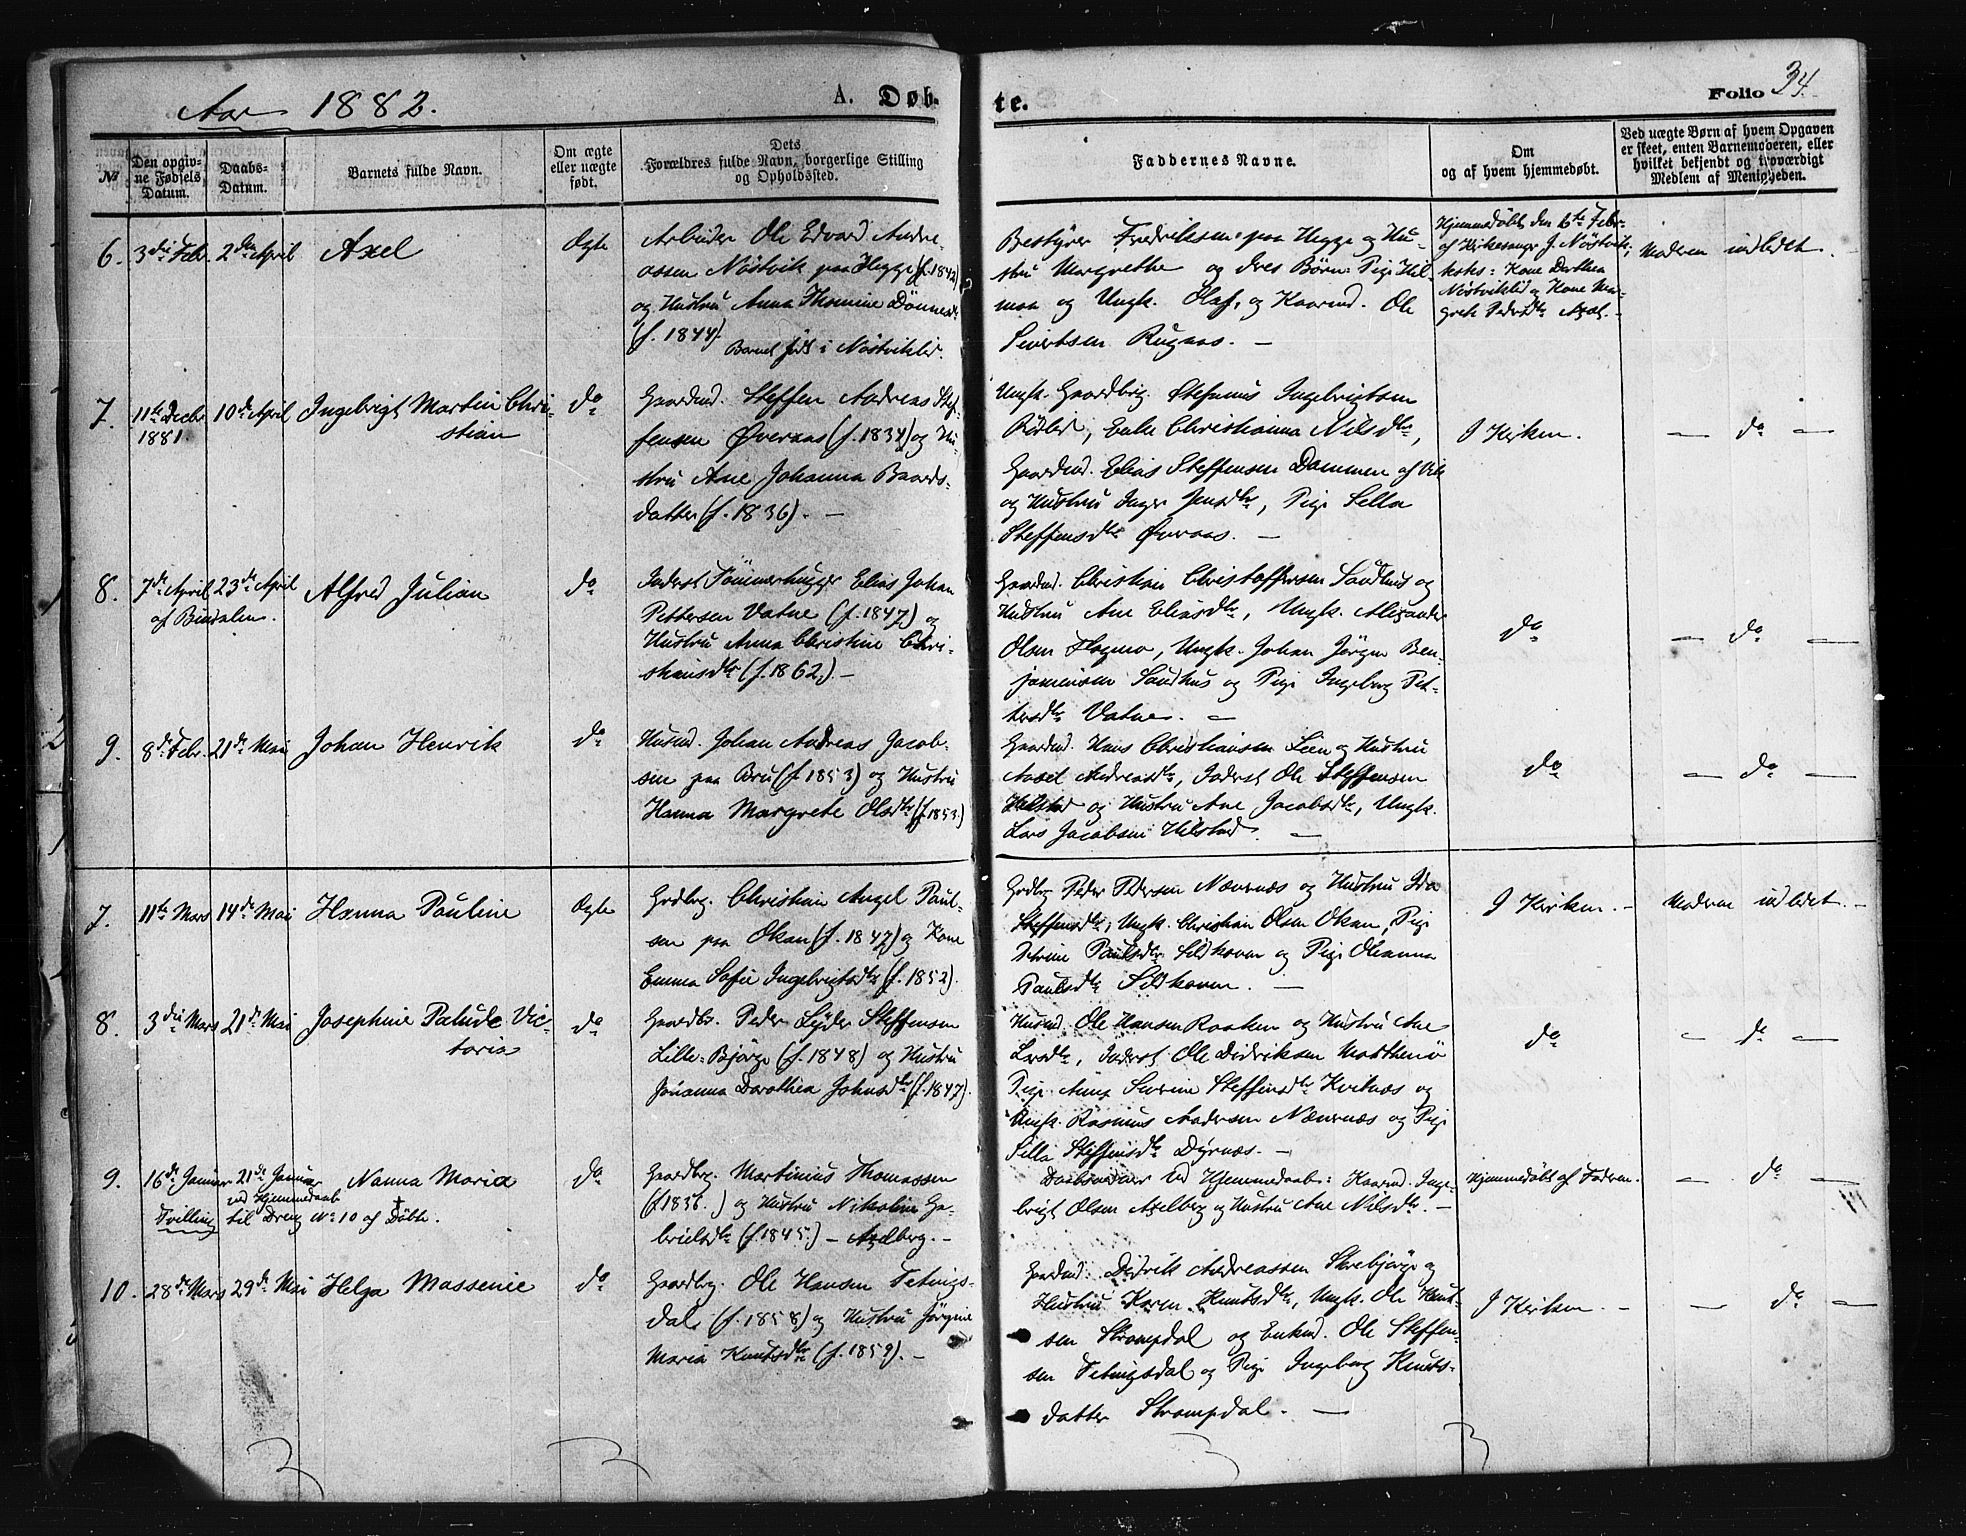 Aar 1882.
A. Døb-
te.
Folio 34.
No
Den opgiv-
ne Fødsels
Datum.
Daabs-
Datum.
Barnets fulde Navn.
Om ægte
eller uægte
født.
Dets
Forældres fulde Navn, borgerlige Stilling
og Opholdssted.
Faddernes Navne.
Om
og af hvem hjemmedøbt.
Ved uægte Børn af hvem Opgaven
er skeet, enten Barnemoderen, eller
hvilket bekjendt og troværdigt
Medlem af Menigheden.
6.
3die Febr.
2den April
Axel
Ægte
Arbeider Ole Edvard Andre-
assen Nöstvik paa Hegge (f. 1842)
og Hustru Anna Thomine Dönnesdtr
(f. 1844).
Barnet født i Nöstviklid.
Bestyrer Fredriksen paa Hegge og Hu-
stru Margrethe og deres Börn: Pige Hil-
maa og Ungk. Olaf, og Ole
Sivertsen Rugaas. —
Hjemmedöbt den 6te Febr.
af Kirkesanger J. Nöstvik;
Kone Dorthea
Nöstviklid og Kone Mar-
grete Pedersdtr
Moderen indledet.
7.
11te Decbr
1881
10de April
Ingebrigt Martin Chri-
stian
do
Gaardmd. Steffen Andreas Stef-
fensen Øveraas (f. 1834) og Hu-
stru Ane Johanna Baards-
datter (f. 1836). —
Ungk. Gaardbrg. Ingebrigtsen
Enke Christianna Nilsdtr,
Gaardmd. Elias Steffensen Dammen af Vik
og Hustru Inger Jensdtr, Pige Silla
Steffensdtr Øveraas. —
I Kirken.
— do —
8.
7de April
af Bindalen.
23de April
Alfred Julian
do
Inderst Tömmerhugger Elias Johan
Pettersen Vatne (f. 1847) og
Hustru Anna Christine Chri-
stiansdtr (f. 1862.) —
Gaardmd. Christian Christoffersen Sandhus og
Hustru Ane Eliasdtr, Ungk. Alexander
Olsen Flagmo, Ungk. Johan Jörgen Ben-
jaminsen Sandhus og Pige Ingeborg Pet-
tersdtr Vatne. —
do
— do —
9.
8de Febr.
21de Mai
Johan Henrik
do
Husmd. Johan Andreas Jacob-
sen paa Bru (f. 1853) og Hustru
Hanna Margrete Olsdtr (f. 1853.)
Gaardmd. Hans Christiansen Lien og Hustru
Andreasdtr, Inderst Ole Steffensen
Hilstad og Hustru Ane Jacobsdtr, Ungk.
Lars Jacobsen Hilstad. —
do
— do —
7.
11te Mars
14de Mai
Hanna Pauline
Ægte
Grdbrg. Christian Angel Paul-
sen paa Okan (f. 1847) og Kone
Emma Sofie Ingebrigtsdtr (f. 1852).
Grdbrg Peder Pedersen Nævernæs og Hustru Ida
Steffensdtr, Ungk. Christian Olsen Okan, Pige
Petrine Paulsdtr Sildhoven og Pige Oleanna
Paulsdtr Sildhoven. —
I Kirken. —
Moderen indledet. —
8.
3die Mars
21de Mai
Josephine Palude Vic-
toria
do
Gaardbr. Peder Lyder Steffensen
Lille-Björge (f. 1848) og Hustru
Johanna Dorothea Johnsdtr (f. 1847).
Husmd. Ole Hansen Raaken og Hustru Ane
Larsdtr, Inderst Ole Didriksen
Pige Anna Severine Steffensdtr Kvitnæs og
Ungk. Rasmus Andersen Nævernæs og Pige
Silla Steffensdtr Dyrnæs. —
do
— do —
9.
16de Januar
Tvilling
21de Januar
ved Hjemmedaab
til Dreng No 10 af Döbte.
Nanna Maria
†
do
Gaardbrg. Martinius Thomassen
(f. 1836.) og Hustru Nikoline Ga-
brielsdtr (f. 1845.) — Axelberg. —
Daabsvidner ved Hjemmedaab: Inge-
brigt Olsen Axelberg og Hustru Ane Nilsdtr. —
Hjemmedöbt af Faderen.
— do —
10.
28de Mars
29de Mai
Helga Massenie
do
Gaardbrg. Ole Hansen Tetings-
dal (f. 1858) og Hustru Jörgine
Maria Knutsdtr (f. 1859). —
Gaardmd. Didrik Andreassen Skrebjörge og
Hustru Karen Knutsdtr, Ungk. Ole Knut-
sen Strompdal og Enkmd. Ole Steffen-
sen Tetingsdal og Pige Ingeborg Knuts-
datter Strompdal. —
I Kirken. —
— do —